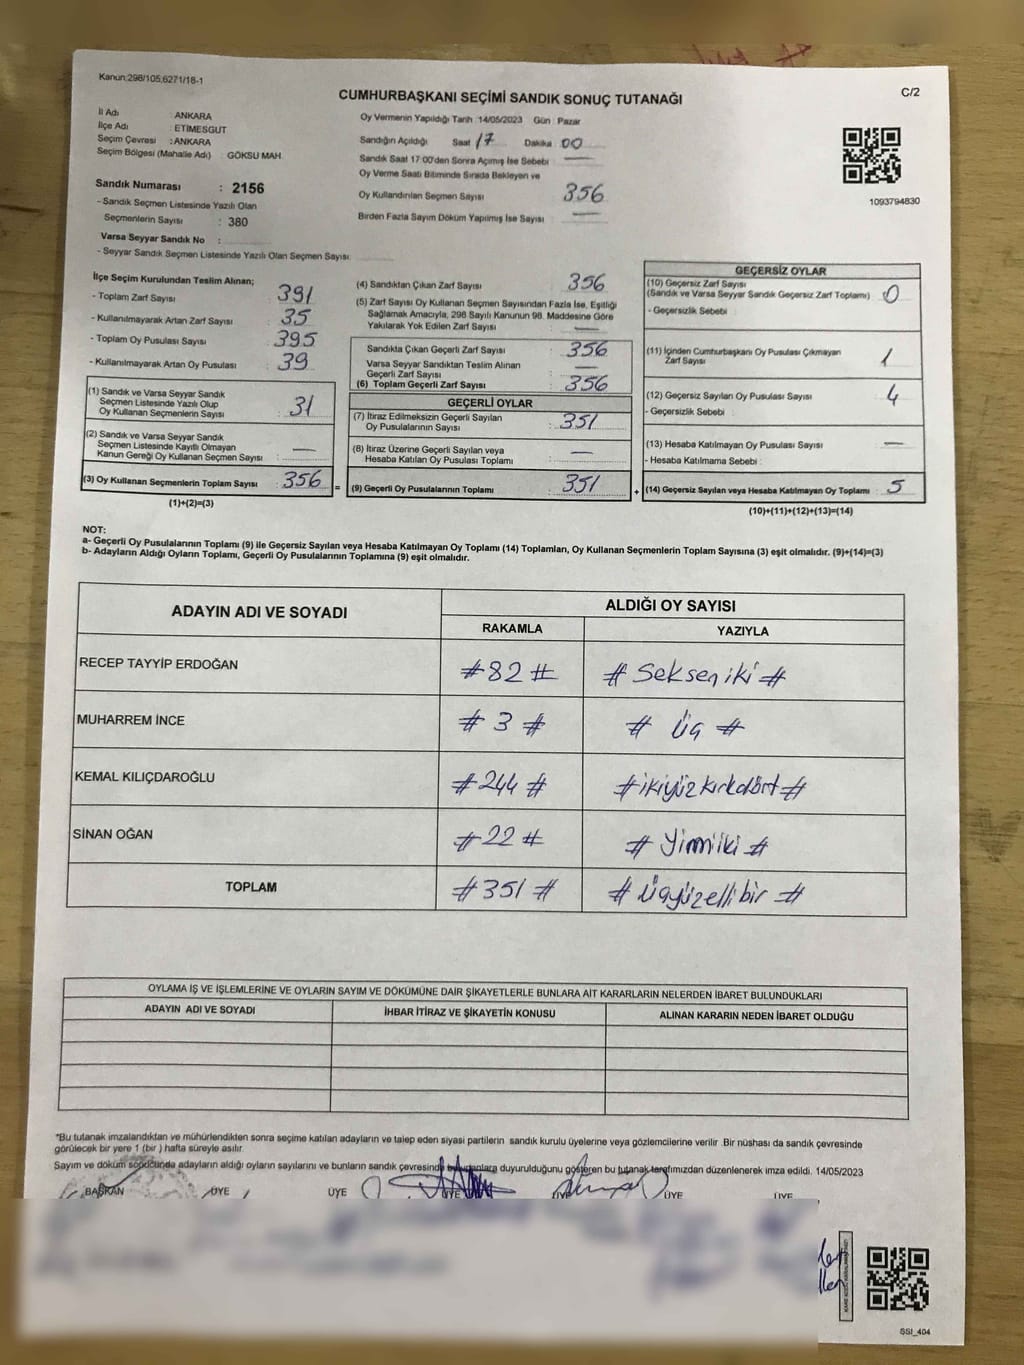 Kanun:298/105,6271/18-1
CUMHURBAŞKANI SEÇİMİ SANDIK SONUÇ TUTANAĞI
C/2
İl Adı : ANKARA
İlçe Adı : ETİMESGUT
Seçim Çevresi : ANKARA
Seçim Bölgesi (Mahalle Adı) GÖKSU MAH.
Sandık Numarası : 2156
- Sandık Seçmen Listesinde Yazılı Olan
Seçmenlerin Sayısı : 380
Varsa Seyyar Sandık No :
- Seyyar Sandık Seçmen Listesinde Yazılı Olan Seçmen Sayısı:
Oy Vermenin Yapıldığı Tarih :14/05/2023 Gün : Pazar
Sandığın Açıldığı Saat : 17 Dakika : 00
Sandık Saat 17:00'den Sonra Açımış İse Sebebi : —
Oy Verme Saati Bitiminde Sırada Bekleyen ve
Oy Kullandırılan Seçmen Sayısı : 356
Birden Fazla Sayım Döküm Yapılmış İse Sayısı : —
1093794830
İlçe Seçim Kurulundan Teslim Alınan;
- Toplam Zarf Sayısı : 391
- Kullanılmayarak Artan Zarf Sayısı : 35
- Toplam Oy Pusulası Sayısı : 395
- Kullanılmayarak Artan Oy Pusulası : 39
(1) Sandık ve Varsa Seyyar Sandık
Seçmen Listesinde Yazılı Olup
Oy Kullanan Seçmenlerin Sayısı : 31
(2) Sandık ve Varsa Seyyar Sandık
Seçmen Listesinde Kayıtlı Olmayan
Kanun Gereği Oy Kullanan Seçmen Sayısı : —
(3) Oy Kullanan Seçmenlerin Toplam Sayısı : 356
(1)+(2)=(3)
(4) Sandıktan Çıkan Zarf Sayısı : 356
(5) Zarf Sayısı Oy Kullanan Seçmen Sayısından Fazla İse, Eşitliği
Sağlamak Amacıyla, 298 Sayılı Kanunun 98. Maddesine Göre
Yakılarak Yok Edilen Zarf Sayısı : —
Sandıkta Çıkan Geçerli Zarf Sayısı : 356
Varsa Seyyar Sandıktan Teslim Alınan
Geçerli Zarf Sayısı : —
(6) Toplam Geçerli Zarf Sayısı : 356
GEÇERLİ OYLAR
(7) İtiraz Edilmeksizin Geçerli Sayılan
Oy Pusulalarının Sayısı : 351
(8) İtiraz Üzerine Geçerli Sayılan veya
Hesaba Katılan Oy Pusulası Toplamı : —
= (9) Geçerli Oy Pusulalarının Toplamı : 351 +
GEÇERSİZ OYLAR
(10) Geçersiz Zarf Sayısı
(Sandık ve Varsa Seyyar Sandık Geçersiz Zarf Toplamı) : 0
- Geçersizlik Sebebi :
(11) İçinden Cumhurbaşkanı Oy Pusulası Çıkmayan
Zarf Sayısı : 1
(12) Geçersiz Sayılan Oy Pusulası Sayısı : 4
- Geçersizlik Sebebi :
(13) Hesaba Katılmayan Oy Pusulası Sayısı : —
- Hesaba Katılmama Sebebi :
(14) Geçersiz Sayılan veya Hesaba Katılmayan Oy Toplamı : 5
(10)+(11)+(12)+(13)=(14)
NOT:
a- Geçerli Oy Pusulalarının Toplamı (9) ile Geçersiz Sayılan veya Hesaba Katılmayan Oy Toplamı (14) Toplamları, Oy Kullanan Seçmenlerin Toplam Sayısına (3) eşit olmalıdır. (9)+(14)=(3)
b- Adayların Aldığı Oyların Toplamı, Geçerli Oy Pusulalarının Toplamına (9) eşit olmalıdır.
ADAYIN ADI VE SOYADI ALDIĞI OY SAYISI
RAKAMLA YAZIYLA
RECEP TAYYİP ERDOĞAN #82# #Seksen iki#
MUHARREM İNCE #3# #Üç#
KEMAL KILIÇDAROĞLU #244# #ikiyüzkırkdört#
SİNAN OĞAN #22# #Yirmiiki#
TOPLAM #351# #Üçyüzellibir#
OYLAMA İŞ VE İŞLEMLERİNE VE OYLARIN SAYIM VE DÖKÜMÜNE DAİR ŞİKAYETLERLE BUNLARA AİT KARARLARIN NELERDEN İBARET BULUNDUKLARI
ADAYIN ADI VE SOYADI İHBAR İTİRAZ VE ŞİKAYETİN KONUSU ALINAN KARARIN NEDEN İBARET OLDUĞU
*Bu tutanak imzalandıktan ve mühürlendikten sonra seçime katılan adayların ve talep eden siyasi partilerin sandık kurulu üyelerine veya gözlemcilerine verilir .Bir nüshası da sandık çevresinde
görülecek bir yere 1 (bir ) hafta süreyle asılır.
Sayım ve döküm sonucunda adayların aldığı oyların sayılarını ve bunların sandık çevresinde bulunanlara duyurulduğunu gösteren bu tutanak tarafımızdan düzenlenerek imza edildi. 14/05/2023
BAŞKAN ÜYE ÜYE ÜYE ÜYE ÜYE ÜYE
SSI_404